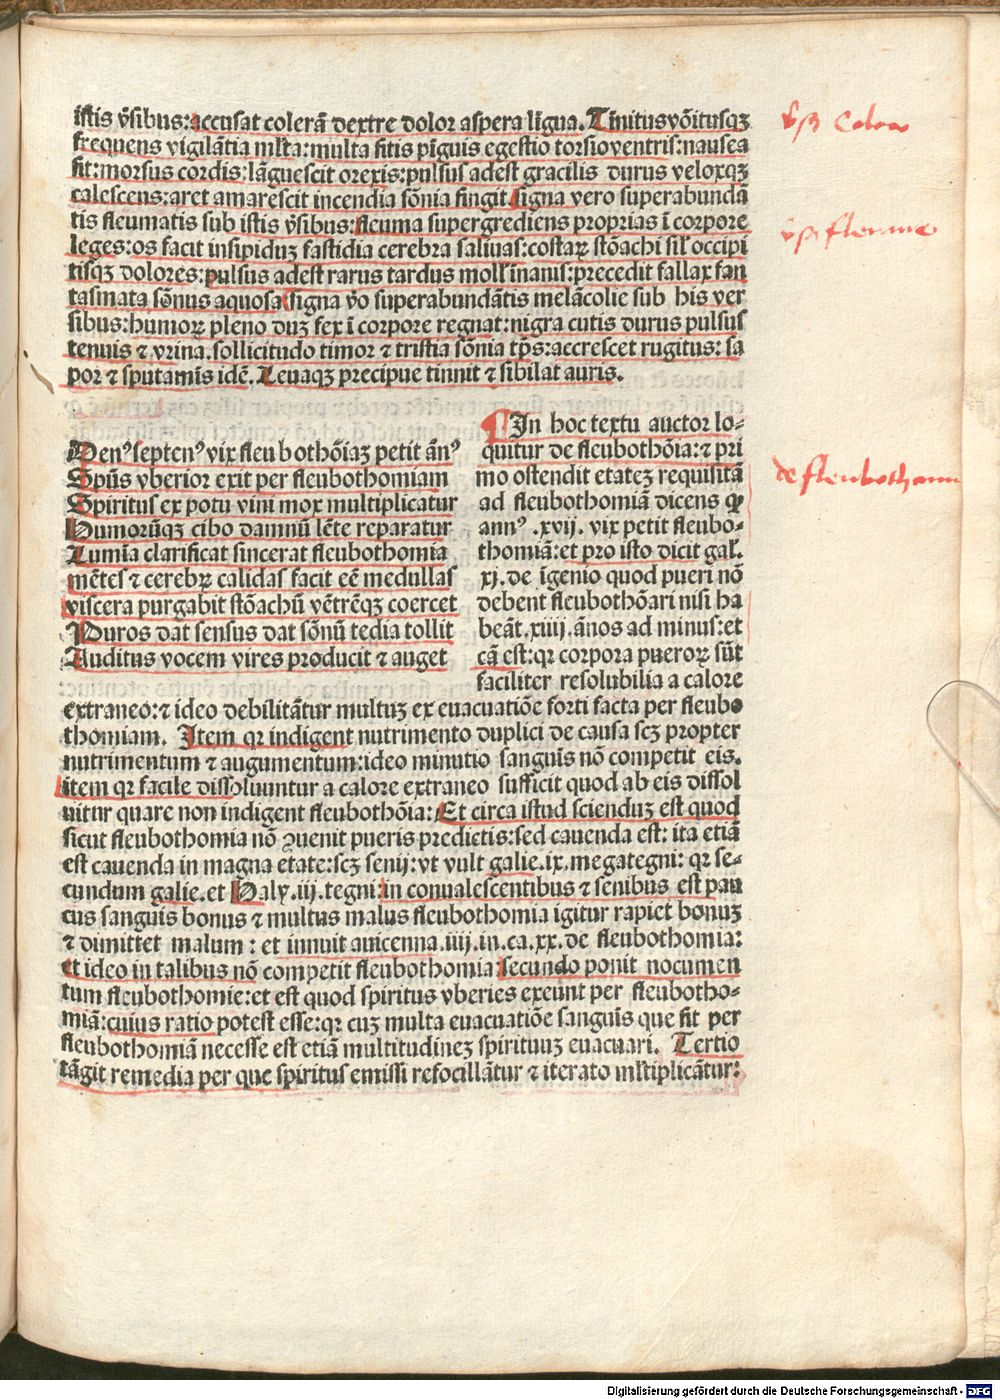 istis v̄sibus: accusat colerā dextre dolor aspera līgua. Tinitus vōitusqꝫ
frequens vigilātia ml̄ta: multa sitis pīguis egestio torsio ventris: nausea
fit: morsus cordis: lāguescit orexis: pulsus adest gracilis durus veloxqꝫ
calescens: aret amarescit incendia sōnia fingit. signa vero superabundā
tis fleumatis sub istis v̄sibus: fleuma supergrediens proprias ī corpore
leges: os facit insipiduꝫ fastidia cerebra saliuas: costaꝝ stōachi sil̄ occipi
tisqꝫ dolores: pulsus adest rarus tardus moll̓ inanis: precedit fallax fan
tasmata sōnus aquosa signa v̄o superabundātis melācolie sub his ver
sibus: humoꝝ pleno duꝫ fex ī corpore regnat: nigra cutis durus pulsus
tenuis ⁊ vrina. sollicitudo timor ⁊ tristia sōnia tp̄s: accrescet rugitus: sa
por ⁊ sputamīs idē. Leuaqꝫ precipue tinnit ⁊ sibilat auris.
Denꝰ septenꝰ vix fleubothōiaꝫ petit ānꝰ
Sp̄us vberior exit per fleubothomiam
Spiritus ex potu vini mox multiplicatur
Humorūqꝫ cibo damnū lēte reparatur
Lumīa clarificat sincerat fleubothomia
mētes ⁊ cerebꝝ calidas facit eē medullas
viscera purgabit stōachū vētrēqꝫ coercet
Puros dat sensus dat sōnū tedia tollit
Auditus vocem vires producit ⁊ auget
¶ In hoc textu auctor lo-
quitur de fleubothōia: ⁊ pri
mo ostendit etateꝫ requisitā
ad fleubothomiā dicens ꝙ
annꝰ .xvij. vix petit fleubo-
thomiā: et pro isto dicit gal̄.
xj. de īgenio quod pueri nō
debent fleubothōari nisi ha
beāt .xiiij. ānos ad minus: et
cā est: qꝛ corpora pueroꝝ sūt
faciliter resolubilia a calore
extraneo: ⁊ ideo debilitātur multuꝫ ex euacuatiōe forti facta per fleubo
thomiam. Item qꝛ indigent nutrimento duplici de causa scꝫ propter
nutrimentum ⁊ augumentum: ideo minutio sanguīs nō competit eis.
item qꝛ facile dissoluuntur a calore extraneo sufficit quod ab eis dissol
uitur quare non indigent fleubothōia: Et circa istud scienduꝫ est quod
sicut fleubothomia nō ꝯuenit pueris predictis: sed cauenda est: ita etiā
est cauenda in magna etate: scꝫ senij: vt vult galie. ix. megategni: qꝛ se-
cundum galie. et Haly .iij. tegni: in conualescentibus ⁊ senibus est pau
cus sanguis bonus ⁊ multus malus fleubothomia igitur rapiet bonuꝫ
⁊ dimittet malum: et innuit auicenna .iiij. in. ca. xx. de fleubothomia:
et ideo in talibus nō competit fleubothomia: secundo ponit nocumen
tum fleubothomie: et est quod spiritus vberies exeunt per fleubotho-
miā: cuius ratio potest esse: qꝛ cuꝫ multa euacuatiōe sanguīs que fit per
fleubothomiā necesse est etiā multitudineꝫ spirituuꝫ euacuari. Tertio
tāgit remedia per que spiritus emissi refocillātur ⁊ iterato ml̄tiplicātur:
de fleubothomia
Digitalisierung gefördert durch die Deutsche Forschungsgemeinschaft - DFG